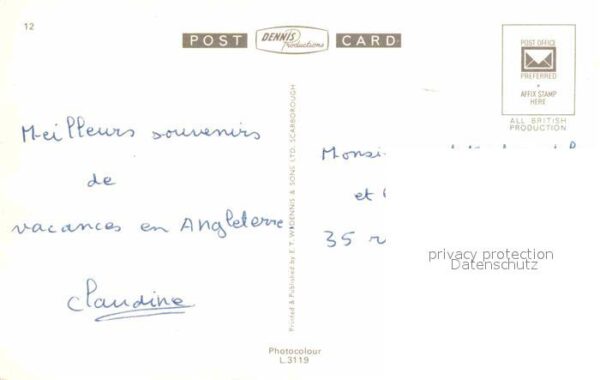 12
POST DENNIS Productions CARD
POST OFFICE
PREFERRED
AFFIX STAMP
HERE
ALL BRITISH
PRODUCTION
Meilleurs souvenirs
de
vacances en Angleterre
Claudine
Printed & Published by E. T. W. DENNIS & SONS LTD, SCARBOROUGH
Monsi
et
35 r
privacy protection
Datenschutz
Photocolour
L.3119